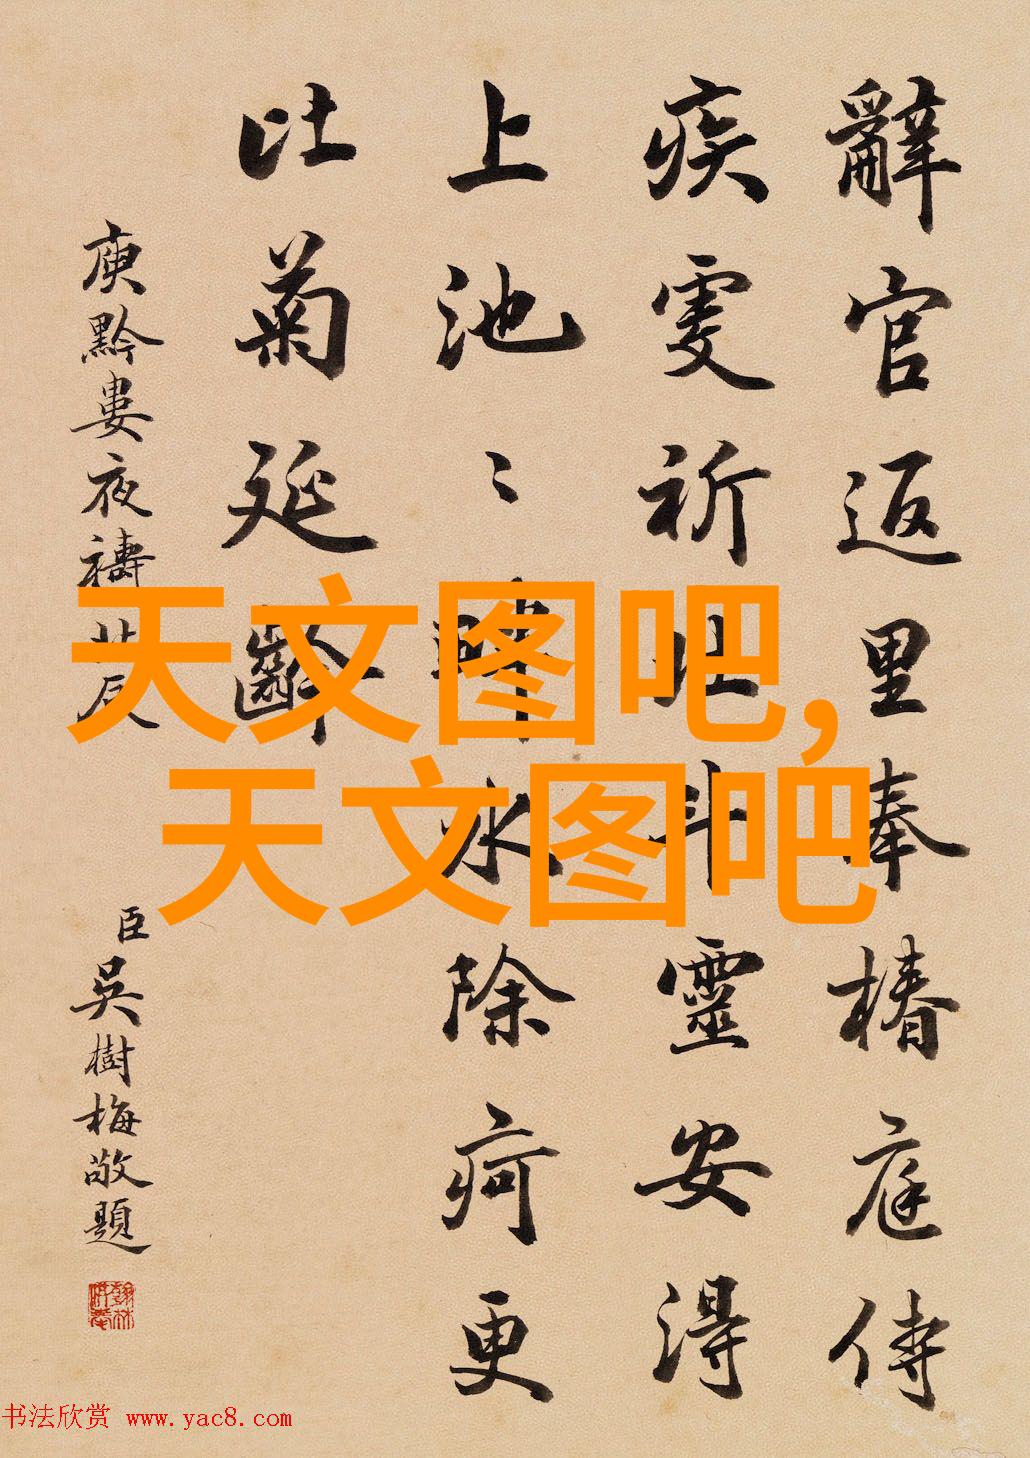 辭官返里奉椿庭侍
疾雯祈北斗靈安得
上池〻畔水除疴更
比菊延齡
庾黔婁夜禱北辰
臣吳樹梅敬題
天文图吧,
天文图吧
书法欣赏 www.yac8.com